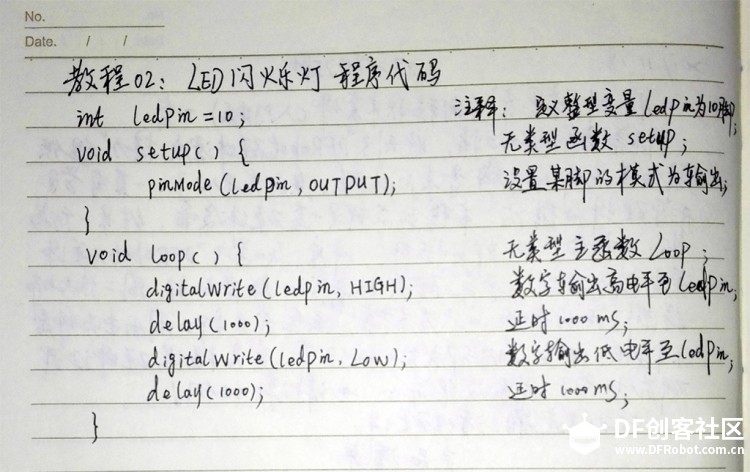 No.
Date. / /
教程02：LED闪烁灯 程序代码
int ledpin =10; 注释：定义整型变量ledpin为10脚;
void setup() { 无类型函数 setup;
pinMode (ledpin, OUTPUT); 设置某脚的模式为输出;
}
void loop() { 无类型主函数 Loop;
digitalWrite (ledpin, HIGH); 数字输出高电平到ledpin;
delay(1000); 延时1000ms;
digitalWrite (ledpin, LOW); 数字输出低电平至ledpin;
delay(1000); 延时1000ms;
}
DF创客社区
www.DFRobot.com.cn